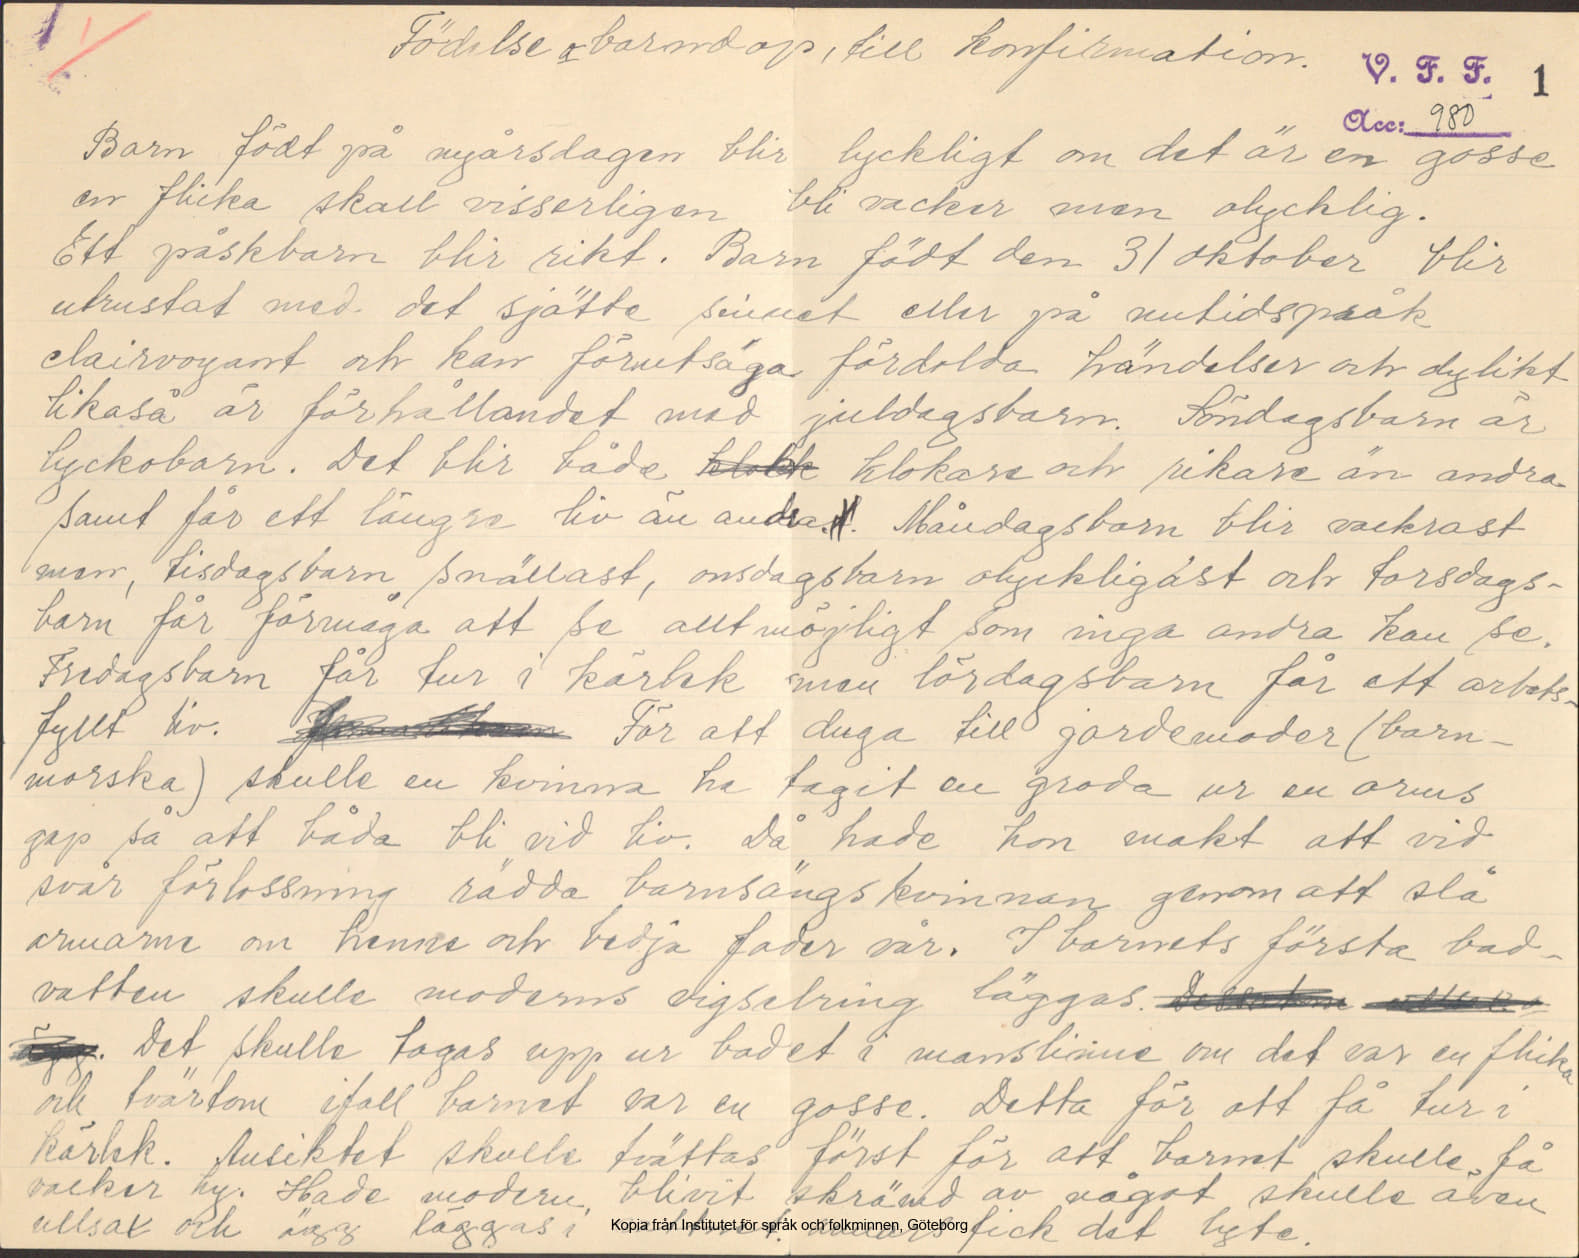 Födelse o barndop, till konfirmation.
V. F. F. 1
Acc: 980
Barn födt på nyårsdagen blir lyckligt om det är en gosse
en flicka skall visserligen bli vacker men olycklig.
Ett påskbarn blir rikt. Barn födt den 31 oktober blir
utrustat med det sjätte sinnet eller på nutidspråk
clairvoyant och kan förutsäga fördolda händelser och dylikt
likaså är förhållandet med juldagsbarn. Söndagsbarn är
lyckobarn. Det blir både klokare och rikare än andra
samt får ett längre liv än andra. Måndagsbarn blir vackrast
men, tisdagsbarn snällast, onsdagsbarn olyckligast och torsdags-
barn får förmåga att se allt möjligt som inga andra kan se.
Fredagsbarn får tur i kärlek men lördagsbarn får ett arbets-
fyllt liv. För att duga till jordemoder (barn-
morska) skulle en kvinna ha tagit en groda ur en orms
gap så att båda bli vid liv. Då hade hon makt att vid
svår förlossning rädda barnsängskvinnan genom att slå
armarne om henne och bedja fader vår. I barnets första bad-
vatten skulle moderns vigselring läggas.
Det skulle tagas upp ur badet i manslinne om det var en flicka
och tvärtom ifall barnet var en gosse. Detta för att få tur i
kärlek. Ansiktet skulle tvättas först för att barnet skulle få
vacker hy. Hade modern blivit skrämd av något skulle även
ullsax och ägg läggas i fick det lyte.
Kopia från Institutet för språk och folkminnen, Göteborg